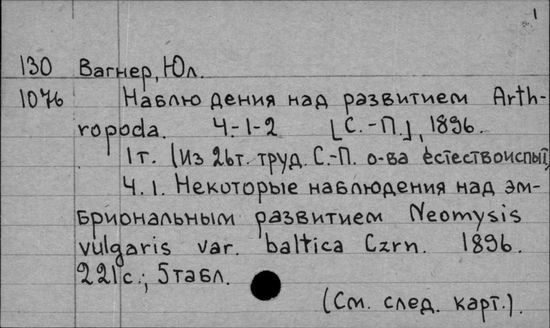 1
130 Вагнер, Юл.
1076 Наблюдения над развитием Arth-
ropoda. Ч-1-2 [С.-П.], 1896.
1т. (Из 26т. труд. С.-П. о-ва естествоиспыт.
Ч.1. Некоторые наблюдения над эм-
бриональным развитием Neomysis
vulgaris var. baltica Czrn. 1896.
221с.; 5табл.
(См. след. карт.).